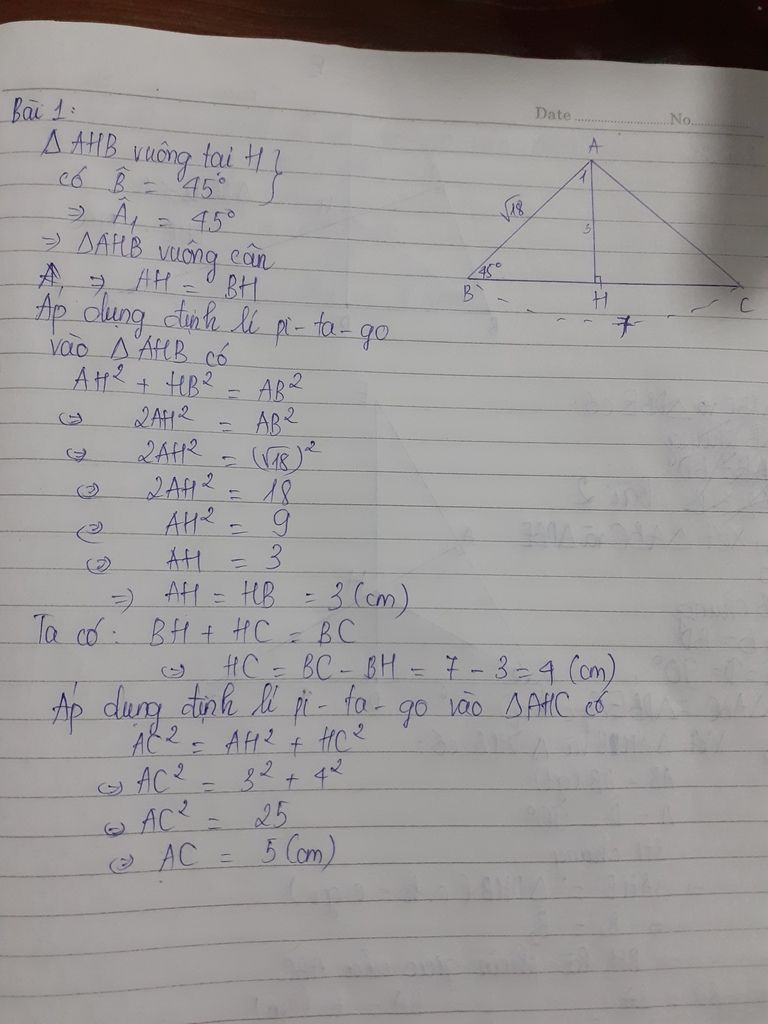 Date ........................ No.................
Bài 1:
Δ AHB vuông tại H }
có B̂ = 45°
⇒ Â₁ = 45°
⇒ ΔAHB vuông cân
⇒ AH = BH
Áp dụng định lí pi-ta-go
vào Δ AHB có
AH² + HB² = AB²
⇔ 2AH² = AB²
⇔ 2AH² = (√18)²
⇔ 2AH² = 18
⇔ AH² = 9
⇔ AH = 3
⇒ AH = HB = 3 (cm)
Ta có: BH + HC = BC
⇔ HC = BC - BH = 7 - 3 = 4 (cm)
Áp dụng định lí pi-ta-go vào ΔAHC có
AC² = AH² + HC²
⇔ AC² = 3² + 4²
⇔ AC² = 25
⇔ AC = 5 (cm)
A
1
√18
3
45°
B
H
C
7